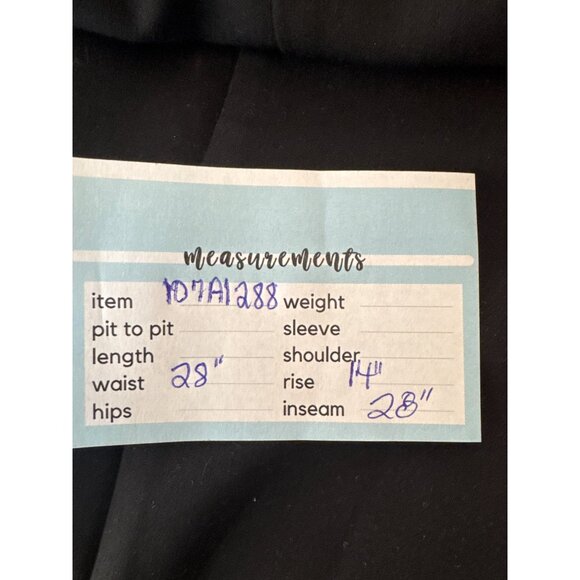 measurements
item 107A1288 weight
pit to pit sleeve
length shoulder
waist 28" rise 14"
hips inseam 28"